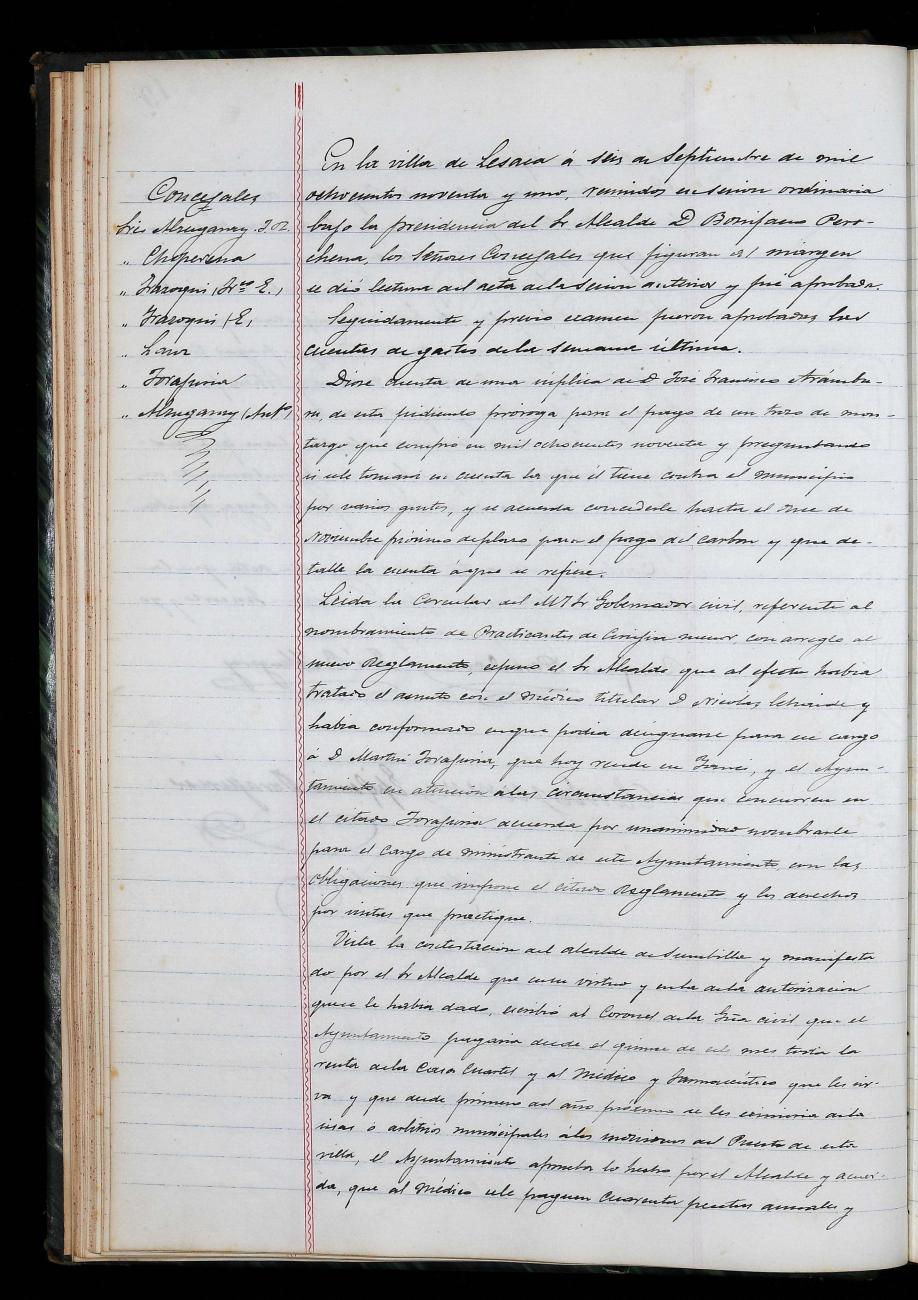 Concejales
Sres Alzugaray. Joz.
" Choperena
" Irazoqui (Frco E.)
" Irazoqui (E.)
" Lanz
" Torajuria
" Alzugaray (Anto)
En la villa de Lesaca á seis de Septiembre de mil
ochocientos noventa y uno, reunidos en sesion ordinaria
bajo la presidencia del Sr Alcalde D Bonifacio Pero-
chena, los Señores Concejales que figuran al margen
se dió lectura del acta de la sesion anterior y fué aprobada.
Seguidamente y previo examen fueron aprobadas las
cuentas de gastos de la semana última.
Diose cuenta de una súplica de D José Francisco Arámbu-
ru, de esta pidiendo próroga para el pago de un trozo de mon-
targo que compró en mil ochocientos noventa y preguntando
si se le tomará en cuenta la que él tiene contra el municipio
por varios gastos, y se acuerda concederle hasta el once de
Noviembre próximo de plazo para el pago del carbon y que de-
talle la cuenta á que se refiere.
Leida la Circular del M. I. Sr Gobernador civil, referente al
nombramiento de Practicantes de Cirujia menor, con arreglo al
nuevo Reglamento, espuso el Sr Alcalde que al efecto habia
tratado el asunto con el médico titular D Nicolás y
habia conformado en que podia designarse para ese cargo
á D Martin Torajuria, que hoy reside en Yanci, y el Ayun-
tamiento en atencion á las circunstancias que concurren en
el citado Torajuria acuerda por unanimidad nombrarle
para el cargo de ministrante de este Ayuntamiento, con las
obligaciones que impone el citado Reglamento y los derechos
por visitas que practique.
Vista la contestacion del alcalde de Sumbilla y manifesta
do por el Sr Alcalde que en su virtud y en la de la autorizacion
que se le habia dado, escribió al Coronel de la Gúa civil que el
Ayuntamiento pagaria desde el quince de este mes toda la
renta de la Casa Cuartel y al Médico y Farmacéutico que les sir-
va y que desde primero del año próximo se les eximiria de la
sisas ó arbitrios municipales á los individuos del Puesto de esta
villa, el Ayuntamiento aprueba lo hecho por el Alcalde y acuer-
da, que al Médico se le paguen cuarenta pesetas anuales y